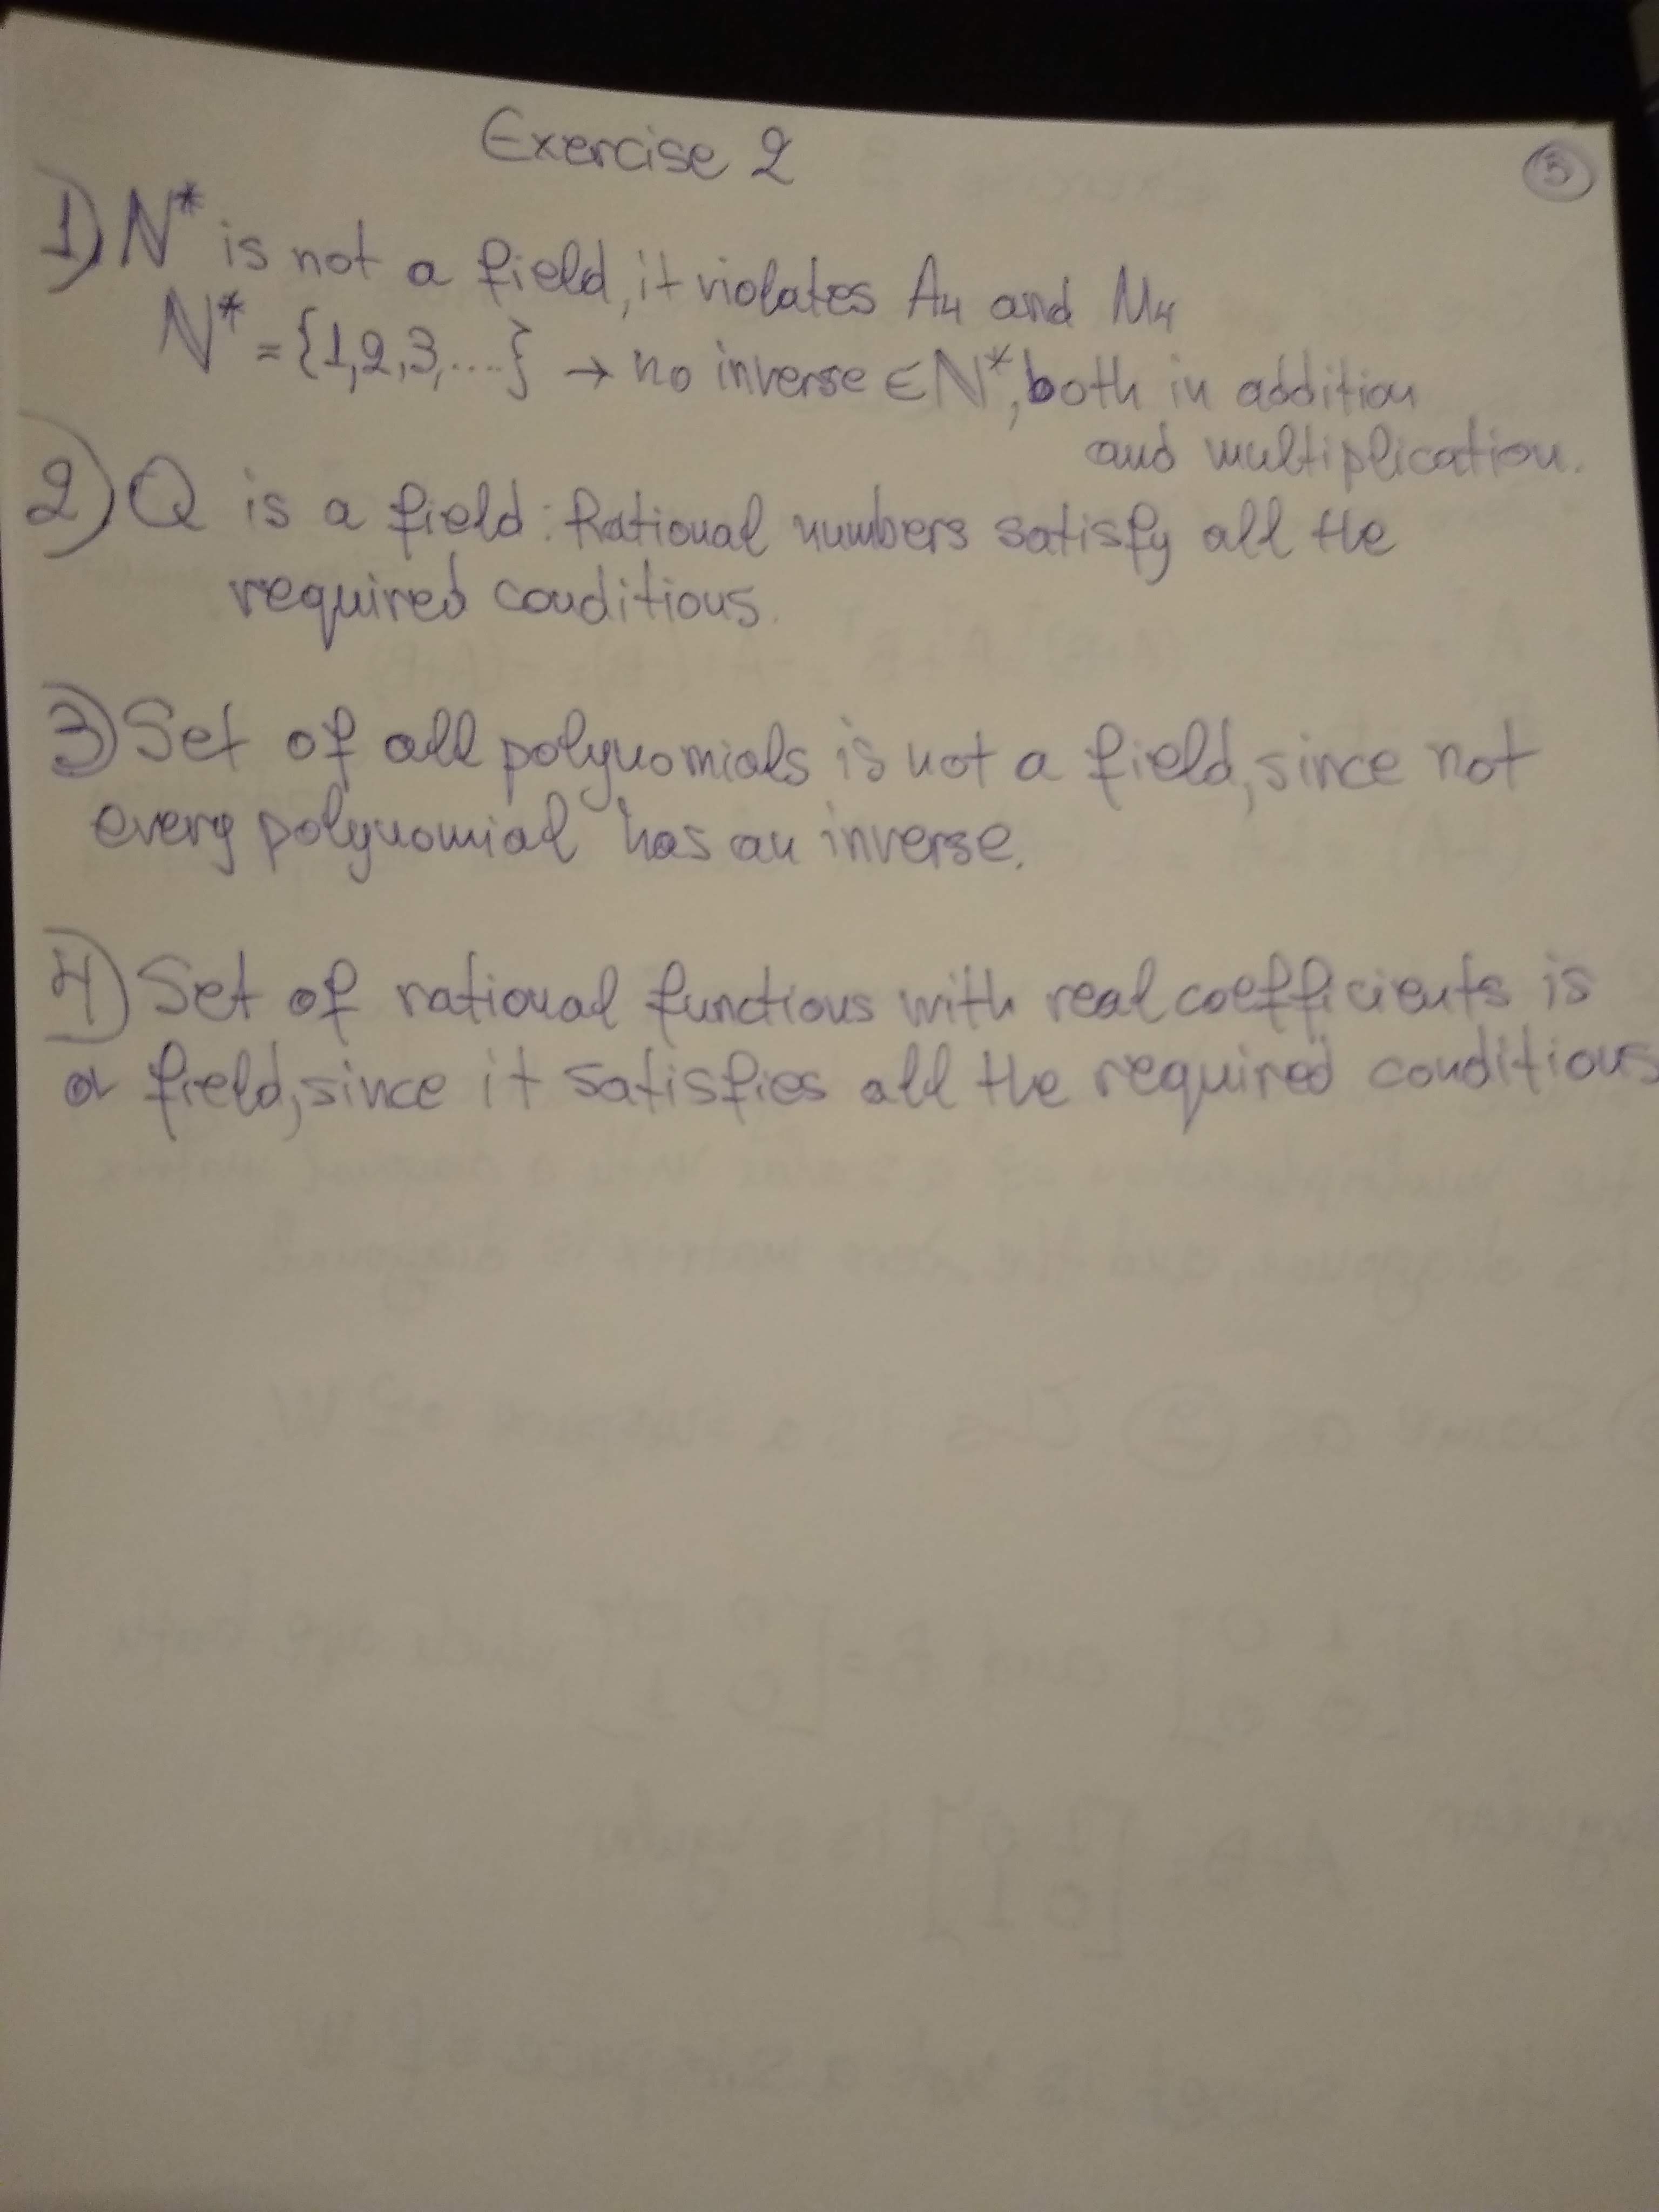 Exercise 2
5
1) N* is not a field, it violates A4 and M4
N* = {1,2,3,....} → no inverse ∈ N*, both in addition
and multiplication.
2) Q is a field: Rational numbers satisfy all the
required conditions.
3) Set of all polynomials is not a field, since not
every polynomial has an inverse.
4) Set of rational functions with real coefficients is
a field, since it satisfies all the required conditions